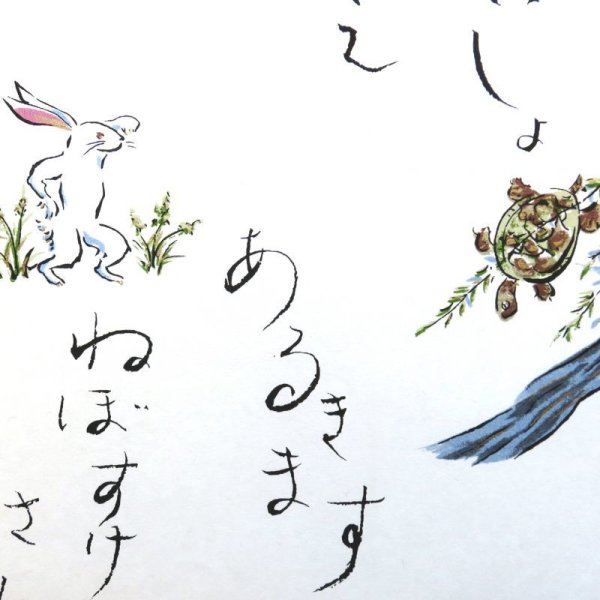 しょ
あるきます
ねぼすけ
さ